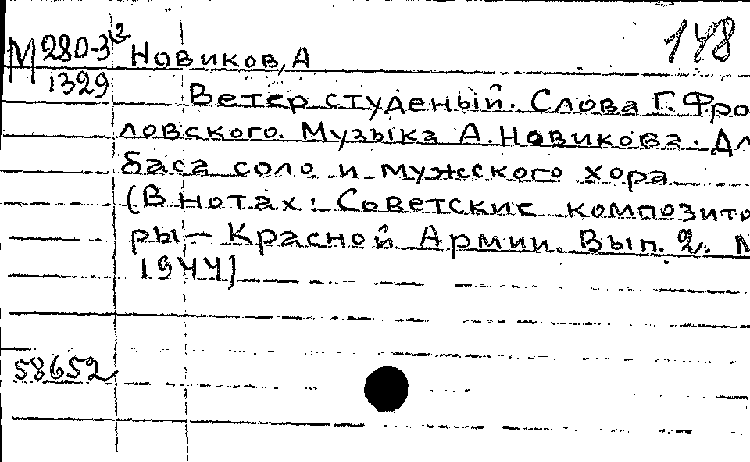 М 280-3 2
1329
Новиков, А
148
Ветер студеный. Слова Г. Фро
ловского. Музыка А. Новикова. Дл
баса соло и мужского хора
(В нотах: Советские композито
ры – Красной Армии. Вып. 2. М
1944)
58652